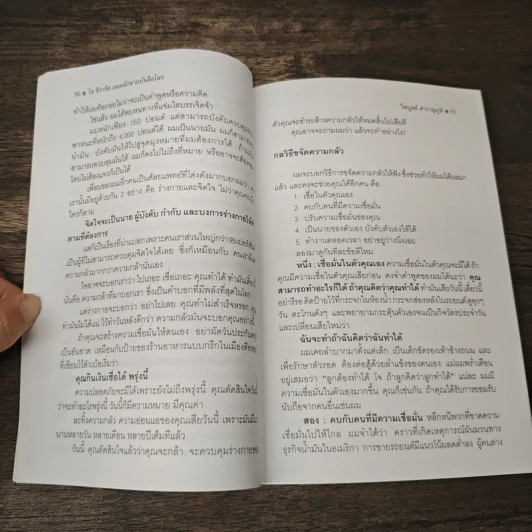 50 ● โจ จีราร์ด ยอดนักขายบันลือโลก
ทำให้ผมท้อถอยไม่ว่าจะเป็นคำพูดหรือความคิด
ใช่แล้ว ผมได้พบหนทางที่แจ่มใสบรรเจิดจ้า
ผมหนักเพียง 150 ปอนด์ แต่สามารถบังคับควบคุม
พาหนะที่หนักถึง 4,000 ปอนด์ได้ ผมเป็นนายมัน ผมก็สามารถ
นำมัน บังคับมันให้ไปสู่จุดมุ่งหมายที่ผมต้องการได้ ถ้าผม
สามารถควบคุมมันได้ ผมก็คงไปไม่ถึงที่หมาย หรืออาจจะต้อง
โดยไม่ต้องแยกก็เป็นได้
เพื่อนของผมอีกคนเป็นศัลยแพทย์ที่โด่งดังมากบอกผมว่า
เรานั้นมีอยู่ด้วยกัน 2 อย่าง คือ ร่างกายและจิตใจ ไม่ว่าคุณจะ
ใครก็ตาม
จิตใจจะเป็นนาย ผู้บังคับ กำกับ และบงการร่างกายให้
ตามที่ต้องการ
แต่ก็เป็นเรื่องที่น่าแปลกเพราะคนเราส่วนใหญ่กว่า 95 เปอร์เซ็นต์
เป็นผู้ที่ไม่สามารถควบคุมจิตใจได้เลย ซึ่งก็เหมือนกับ คนเรานั้น
ความกลัวมากกว่าความกล้านั่นเอง
ใจอาจจะบอกเราว่า ไปเถอะ เชื่อเถอะ คุณทำได้ ทำมันเดี๋ยว
นั่นคือ ความกล้าที่มาบอกเรา ซึ่งเป็นคำบอกที่มีพลังที่สุดในโลก
แต่ร่างกายจะบอกว่า อย่าไปเลย คุณทำไม่สำเร็จหรอก
ทำมันไม่ได้แน่ ไว้ทำวันหลังดีกว่า ความกลัวมันจะบอกคุณอย่างนี้
ถ้าคุณจะสร้างความเชื่อมั่นให้ตนเอง อย่าผัดวันประกันพรุ่ง
เป็นอันขาด เหมือนกับป้ายของร้านอาหารแบบกรีกในเมืองดีทรอยท์
ที่เขียนไว้ด้วยตัวเรืองว่า
คุณกินเงินเชื่อได้ พรุ่งนี้
ความปลอดภัยจะมีได้เพราะยังไม่ถึงพรุ่งนี้ คุณตัดสินใจไว้
ว่าจะทำอะไรพรุ่งนี้ วันนี้ก็มีความหมาย มีคุณค่า
ละทิ้งความกลัว ความอ่อนแอของคุณเสียวันนี้ เพราะมันมี
นานหลายวัน หลายเดือน หลายปีเต็มที่แล้ว
วันนี้ คุณตัดสินใจแล้วว่าคุณจะกล้า จะควบคุมร่างกายของ
ไพฑูลย์ สำราญภูติ ● 51
ตัวคุณจะชำระล้างความกลัวให้หมดสิ้นไปเสียที
คุณอาจจะถามผมว่า แล้วจะทำอย่างไร?
กลวิธีขจัดความกลัว
ผมจะบอกวิธีการขจัดความกลัวให้ฟังซึ่งช่วยทำให้ผมได้ผลมา
แล้ว และคงจะช่วยคุณได้อีกคน คือ
1. เชื่อในตัวคุณเอง
2. คบกับคนที่มีความเชื่อมั่น
3. ปรับความเชื่อมั่นของคุณ
4. เป็นนายของตัวเอง บังคับตัวเองให้ได้
5. ทำงานตลอดเวลา อย่าอยู่ว่างนิ่งเฉย
ลองมาดูกันทีละข้อดีไหม
หนึ่ง : เชื่อมั่นในตัวคุณเอง ความเชื่อมั่นในตัวคุณจะมีได้ ถ้า
คุณมีความเชื่อมั่นในตัวคุณเสียก่อน คงจำคำพูดของผมได้นะว่า คุณ
สามารถทำอะไรก็ได้ ถ้าคุณคิดว่าคุณทำได้ ทำมันเสียวันนี้ เดี๋ยวนี้
อย่ารีรอ ติดป้ายไว้ที่กระจกในห้องน้ำ กระจกส่องหลังในรถยนต์ ดูทุกๆ
วัน ตะโกนดังๆ และพยายามกระตุ้นตัวเองจนเป็นกิจวัตรประจำวัน
และเปลี่ยนเสียใหม่ว่า
ฉันจะทำถ้าฉันคิดว่าฉันทำได้
ผมเคยลำบากมาตั้งแต่เล็ก เป็นเด็กขัดรองเท้าข้างถนน และ
เพื่อรักษาตัวรอด ต้องต่อสู้ด้วยลำแข้งของตนเอง แม่ผมพร่ำเตือน
อยู่เสมอว่า "ลูกต้องทำได้ โจ ถ้าลูกคิดว่าลูกทำได้" แน่ละ ผมมี
ความเชื่อมั่นในตัวเองมากขึ้น คุณก็เช่นกัน ถ้าคุณได้รับการยอมรับ
นับถือจากคนอื่นเช่นผม
สอง : คบกับคนที่มีความเชื่อมั่น หลีกหนีพวกที่ขาดความ
เชื่อมั่นไปให้ไกล ผมจำได้ว่า คราวที่เกิดเหตุการณ์ผันผวนทาง
ธุรกิจน้ำมันในอเมริกา การขายรถยนต์มีแนวโน้มลดต่ำลง ผู้คนต่าง